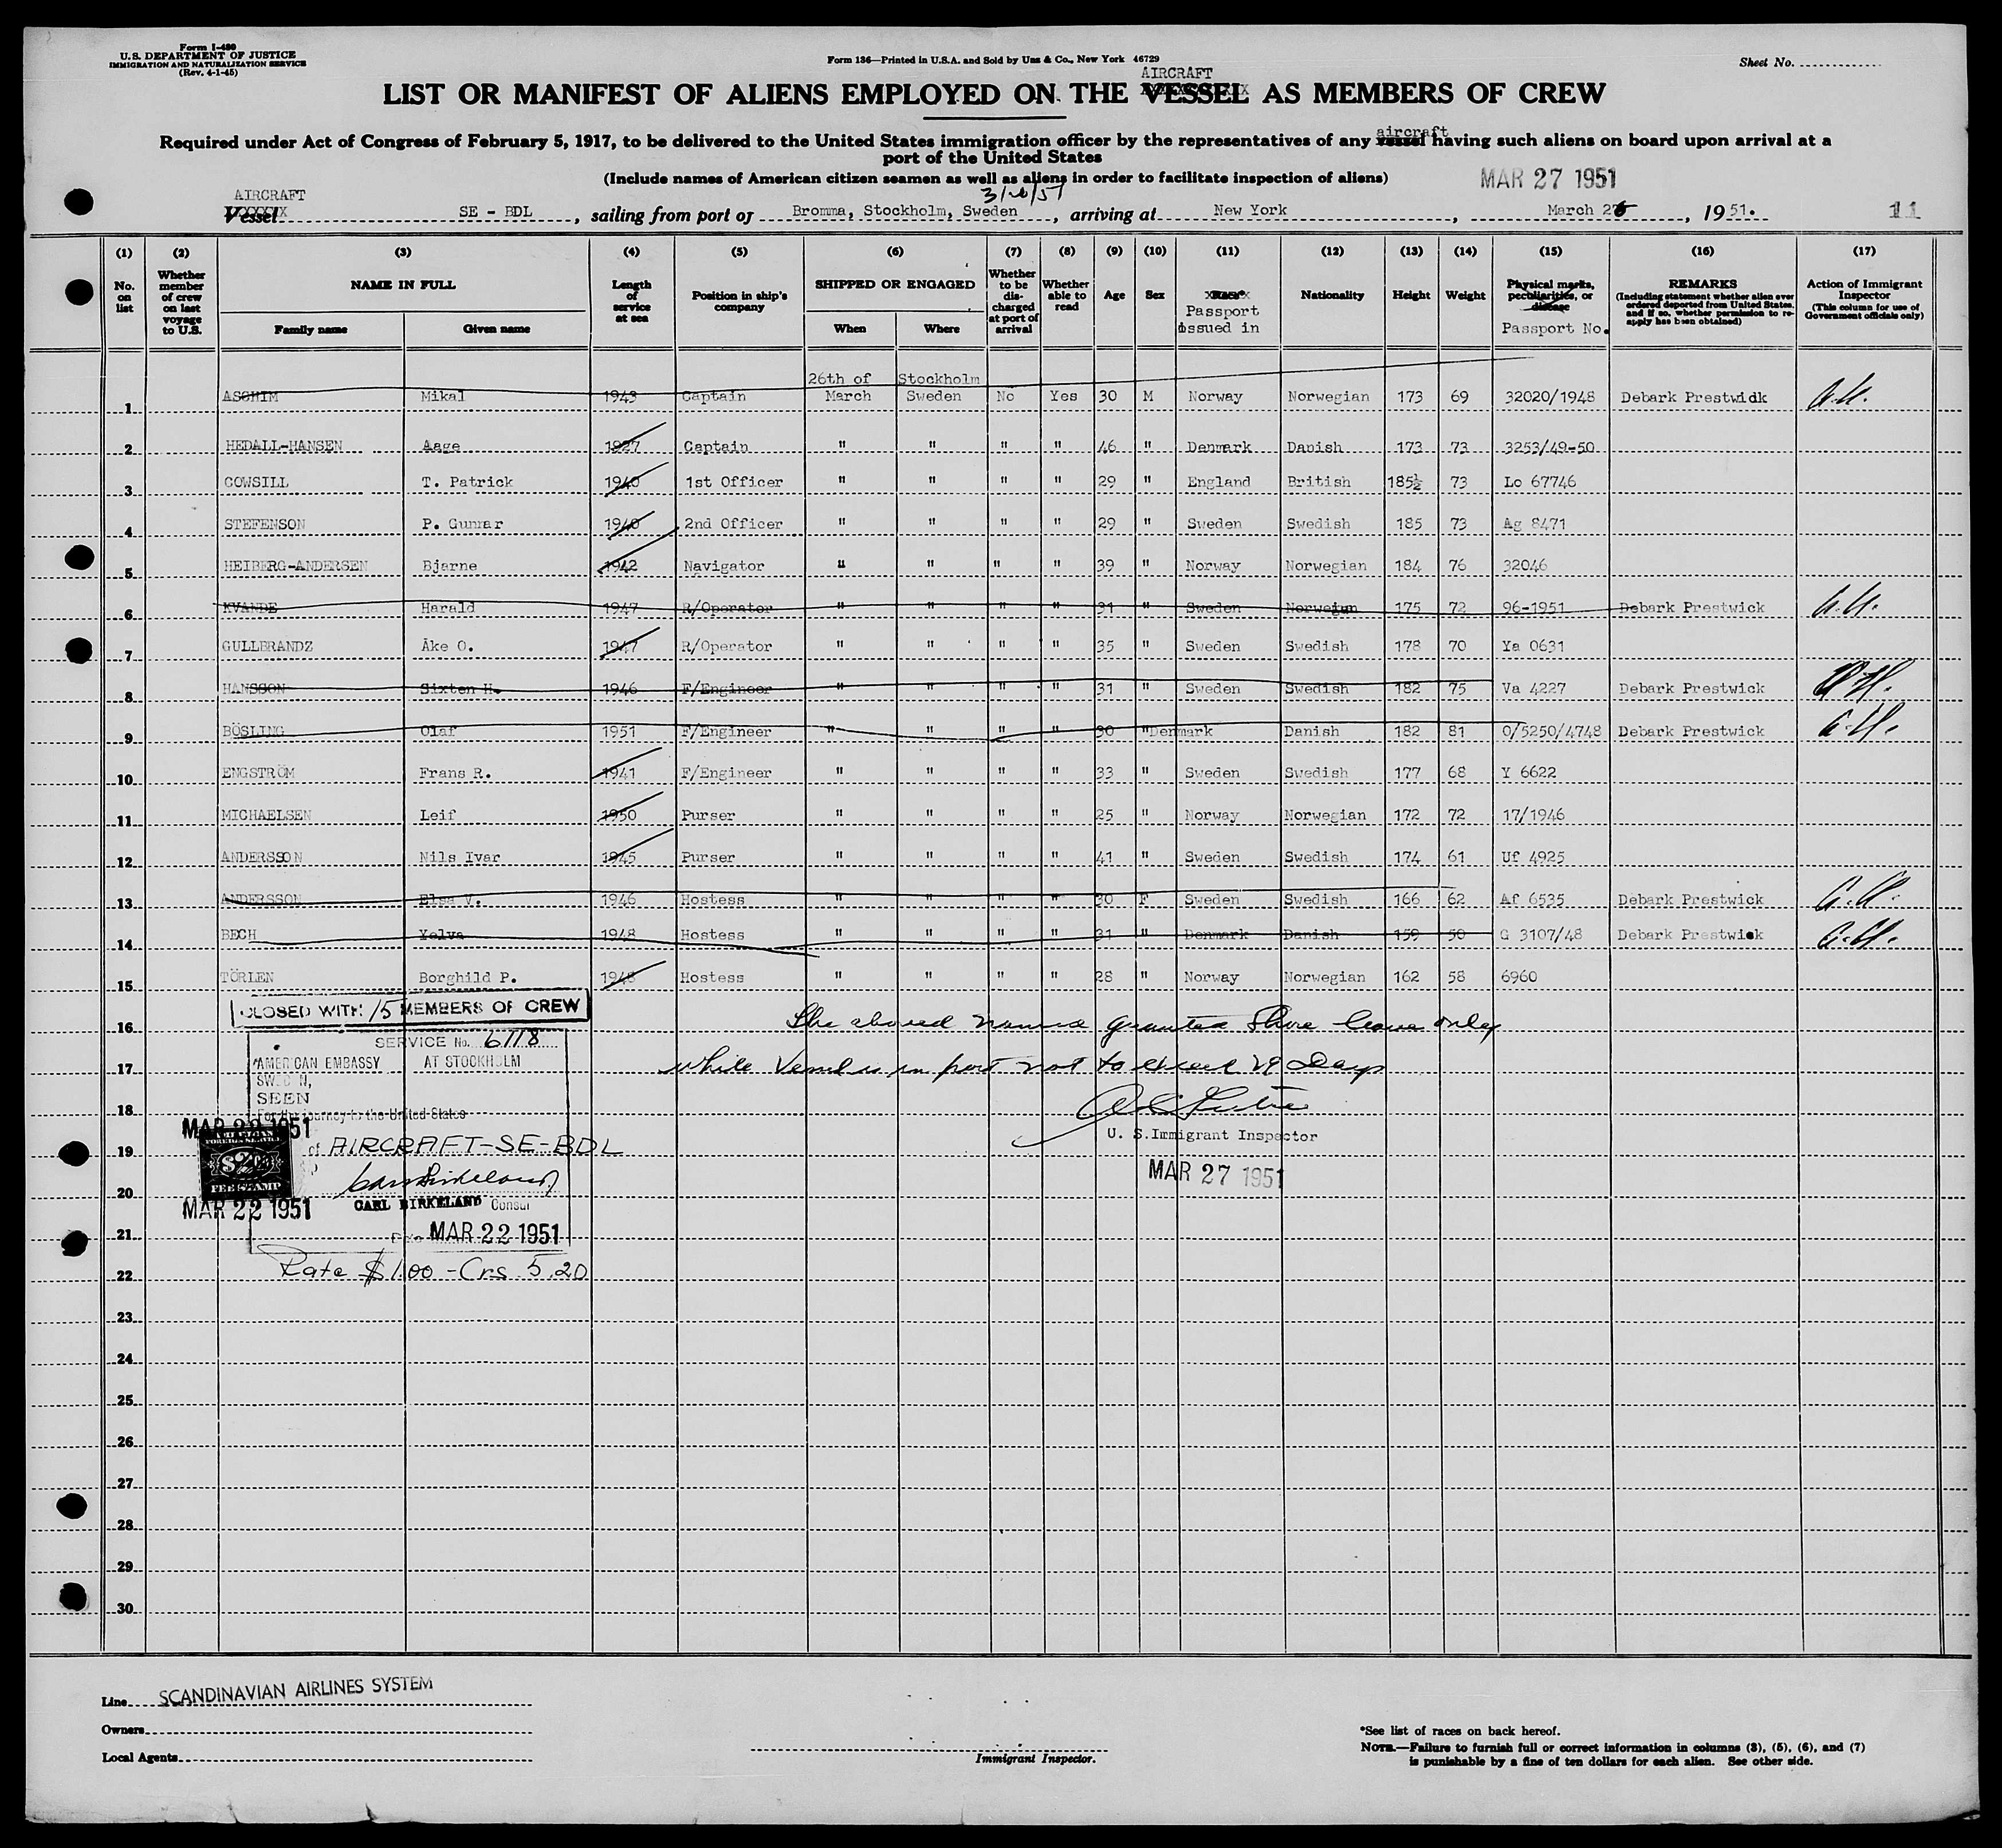 Form I-480
U.S. DEPARTMENT OF JUSTICE
IMMIGRATION AND NATURALIZATION SERVICE
(Rev. 4-1-45)
Form 136—Printed in U.S.A. and Sold by Unz & Co., New York 46729
Sheet No.
AIRCRAFT
LIST OR MANIFEST OF ALIENS EMPLOYED ON THE VESSEL AS MEMBERS OF CREW
Required under Act of Congress of February 5, 1917, to be delivered to the United States immigration officer by the representatives of any vessel aircraft having such aliens on board upon arrival at a
port of the United States
(Include names of American citizen seamen as well as aliens in order to facilitate inspection of aliens)
MAR 27 1951
AIRCRAFT
Vessel SE - BDL, sailing from port of Bromma, Stockholm, Sweden, arriving at New York, March 26, 1951. 11
(1) (2) (3) (4) (5) (6) (7) (8) (9) (10) (11) (12) (13) (14) (15) (16) (17)
No. on list
Whether member of crew on last voyage to U.S.
NAME IN FULL
Family name Given name
Length of service at sea
Position in ship's company
SHIPPED OR ENGAGED
When Where
Whether to be discharged at port of arrival
Whether able to read
Age
Sex
Race*
Passport issued in
Nationality
Height
Weight
Physical marks, peculiarities, or disease
Passport No.
REMARKS
(Including statement whether alien ever ordered deported from United States, and if so, whether permission to reapply has been obtained)
Action of Immigrant Inspector
(This column for use of Government officials only)
26th of Stockholm
1 ASCHIM Mikal 1943 Captain March Sweden No Yes 30 M Norway Norwegian 173 69 32020/1948 Debark Prestwidk
2 HEDALL-HANSEN Aage 1927 Captain " " " " 46 " Denmark Danish 173 73 3253/49-50
3 COWSILL T. Patrick 1940 1st Officer " " " " 29 " England British 185½ 73 Lo 67746
4 STEFENSON P. Gunnar 1940 2nd Officer " " " " 29 " Sweden Swedish 185 73 Ag 8471
5 HEIBERG-ANDERSEN Bjarne 1942 Navigator " " " " 39 " Norway Norwegian 184 76 32046
6 KVANDE Harald 1947 R/Operator " " " " 31 " Sweden Norwegian 175 72 96-1951 Debark Prestwick
7 GULLBRANDZ Åke O. 1947 R/Operator " " " " 35 " Sweden Swedish 178 70 Ya 0631
8 HANSSON Sixten H. 1946 F/Engineer " " " " 31 " Sweden Swedish 182 75 Va 4227 Debark Prestwick
9 BÖSLING Olaf 1951 F/Engineer " " " " 30 " Denmark Danish 182 81 0/5250/4748 Debark Prestwick
10 ENGSTRÖM Frans R. 1941 F/Engineer " " " " 33 " Sweden Swedish 177 68 Y 6622
11 MICHAELSEN Leif 1950 Purser " " " " 25 " Norway Norwegian 172 72 17/1946
12 ANDERSSON Nils Ivar 1945 Purser " " " " 41 " Sweden Swedish 174 61 Uf 4925
13 ANDERSSON Elsa V. 1946 Hostess " " " " 30 F Sweden Swedish 166 62 Af 6535 Debark Prestwick
14 BECH Yelva 1948 Hostess " " " " 31 " Denmark Danish 159 50 G 3107/48 Debark Prestwick
15 TÖRLEN Borghild P. 1948 Hostess " " " " 28 " Norway Norwegian 162 58 6960
CLOSED WITH 15 MEMBERS OF CREW
16 The above named granted Shore leave only
SERVICE No. 6118
AMERICAN EMBASSY AT STOCKHOLM
17 while Vessel is in port not to exceed 29 Days
SWEDEN,
SEEN
18 For the journey to the United States
MAR 22 1951
U. S. Immigrant Inspector
19 of AIRCRAFT-SE-BDL
$2
FEE STAMP
MAR 27 1951
20
MAR 22 1951 CARL BIRKELAND Consul
21 MAR 22 1951
22 Rate $1.00 - Crs 5.20
23
24
25
26
27
28
29
30
Line SCANDINAVIAN AIRLINES SYSTEM
Owners
Local Agents
Immigrant Inspector.
*See list of races on back hereof.
NOTE.—Failure to furnish full or correct information in columns (3), (5), (6), and (7)
is punishable by a fine of ten dollars for each alien. See other side.